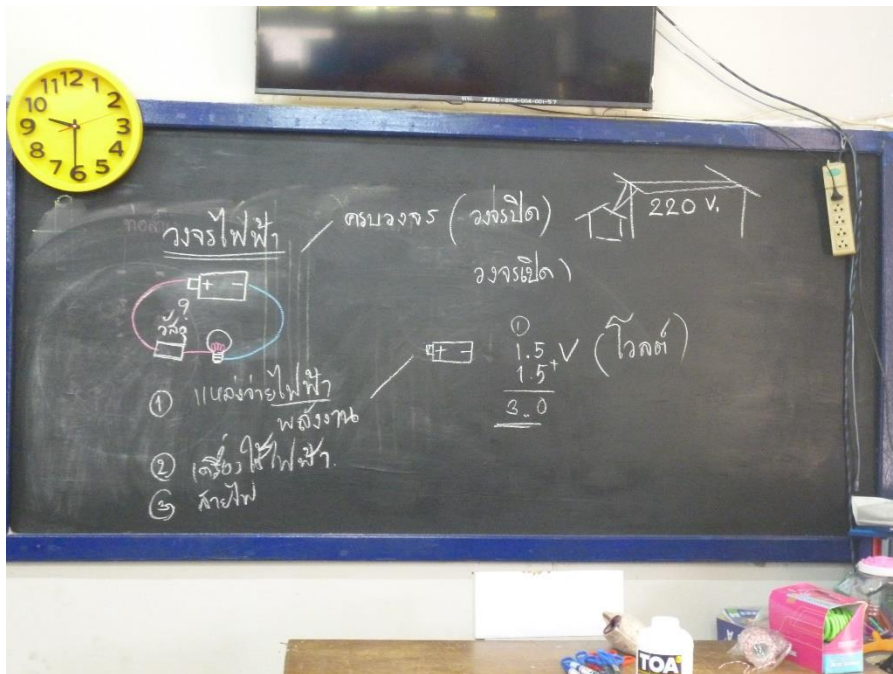 12
1
2
3
4
5
6
7
8
9
10
11
วงจรไฟฟ้า
ครบวงจร (วงจรปิด)
วงจรเปิด)
220 V.
+ -
?
วัสดุ
① แหล่งจ่ายไฟฟ้า
พลังงาน
② เครื่องใช้ไฟฟ้า.
③ สายไฟ
+ -
①
1.5
1.5 + V (โวลต์)
3.0
TOA